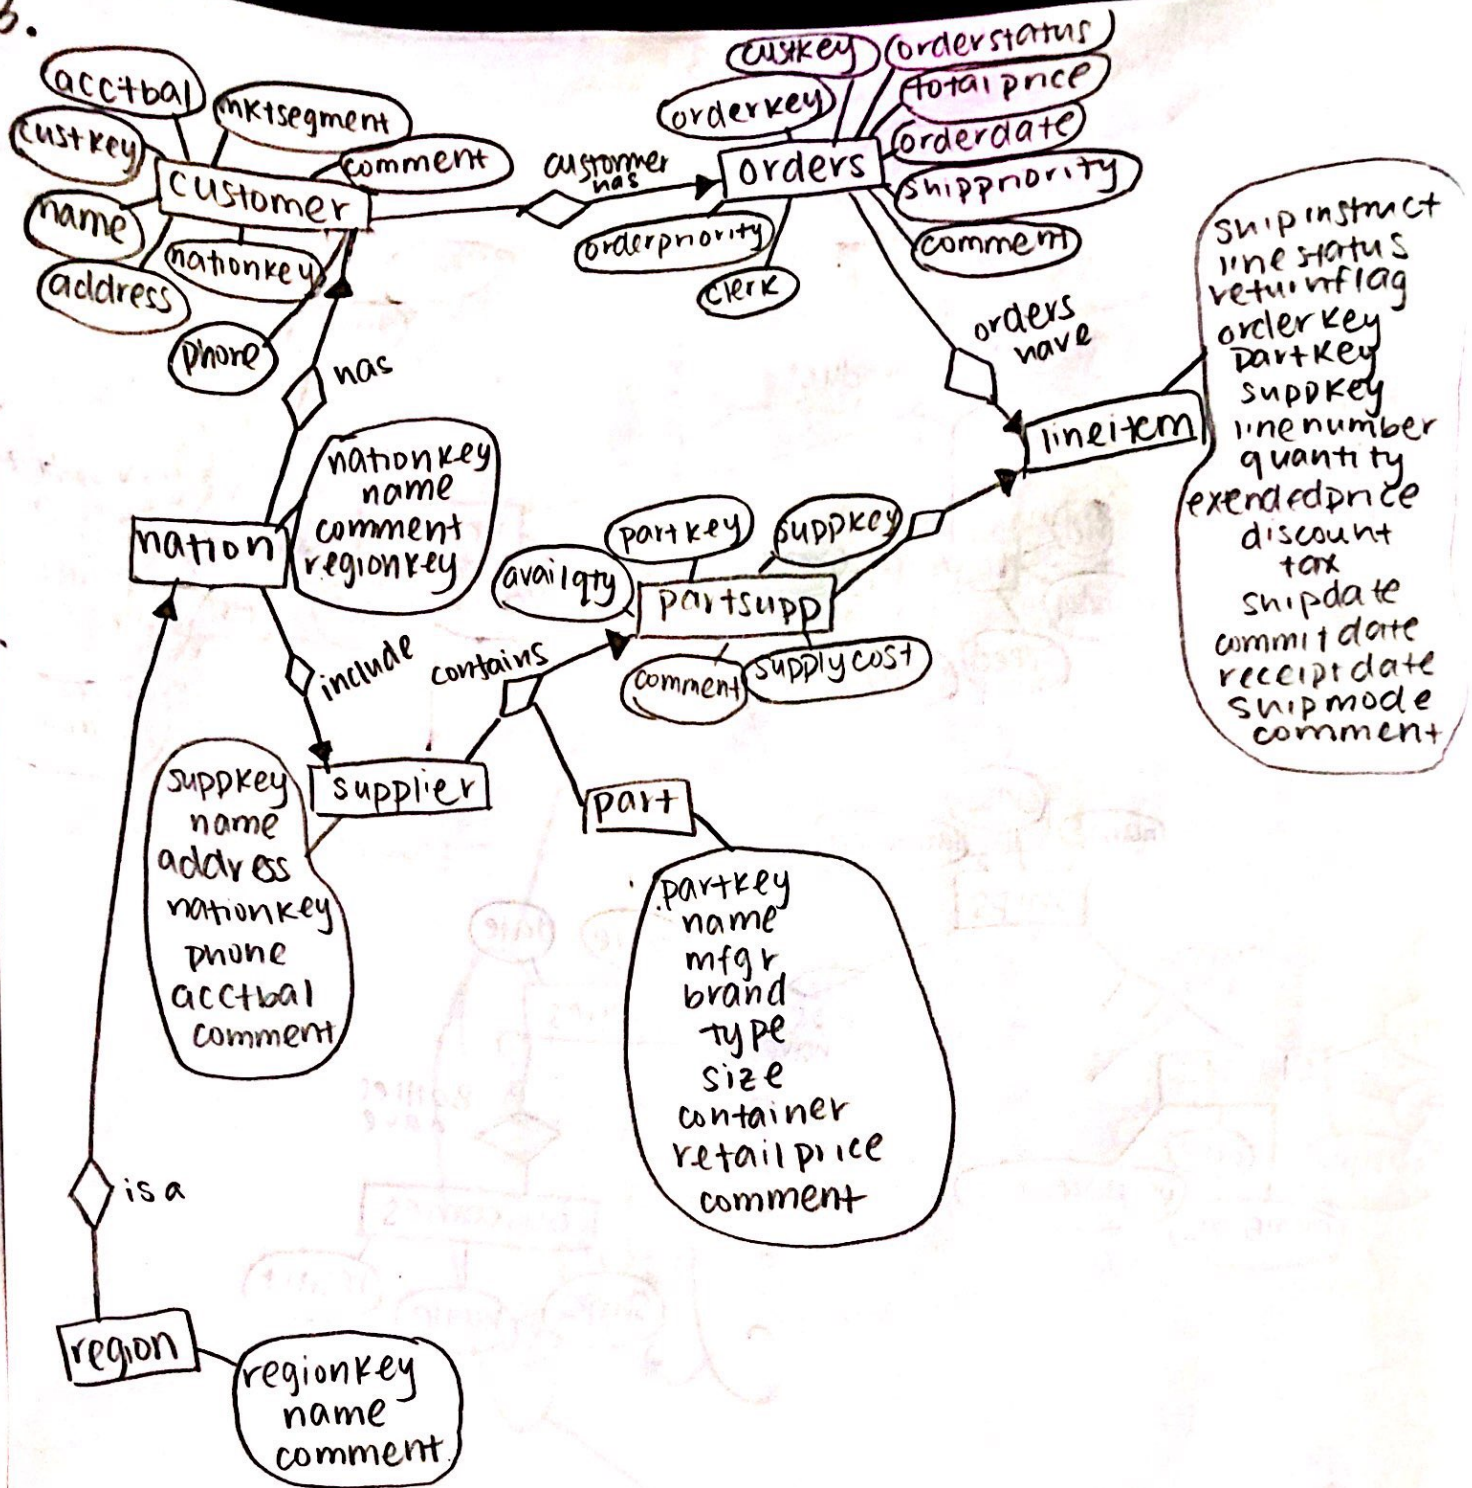 acctbal
mktsegment
custkey
comment
customer
name
nationkey
address
phone
has
custkey
orderstatus
orderkey
totalprice
orderdate
orders
shippriority
orderpriority
comment
clerk
customer
has
orders
have
lineitem
shipinstruct
linestatus
returnflag
orderkey
partkey
suppkey
linenumber
quantity
exendedprice
discount
tax
shipdate
commitdate
receiptdate
shipmode
comment
nation
nationkey
name
comment
regionkey
include
contains
availqty
partkey
suppkey
partsupp
comment
supplycost
supplier
suppkey
name
address
nationkey
phone
acctbal
comment
part
partkey
name
mfgr
brand
type
size
container
retailprice
comment
is a
region
regionkey
name
comment